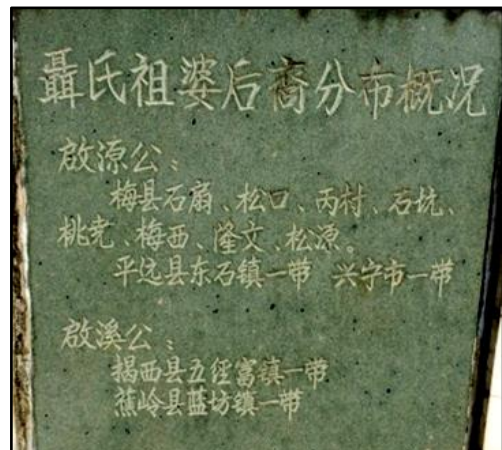 聶氏祖婆后裔分布概况
啟源公：
梅县石扇、松口、丙村、石坑、
桃尧、梅西、隆文、松源。
平远县东石镇一带 兴宁市一带
啟溪公：
揭西县五径富镇一带
蕉岭县蓝坊镇一带